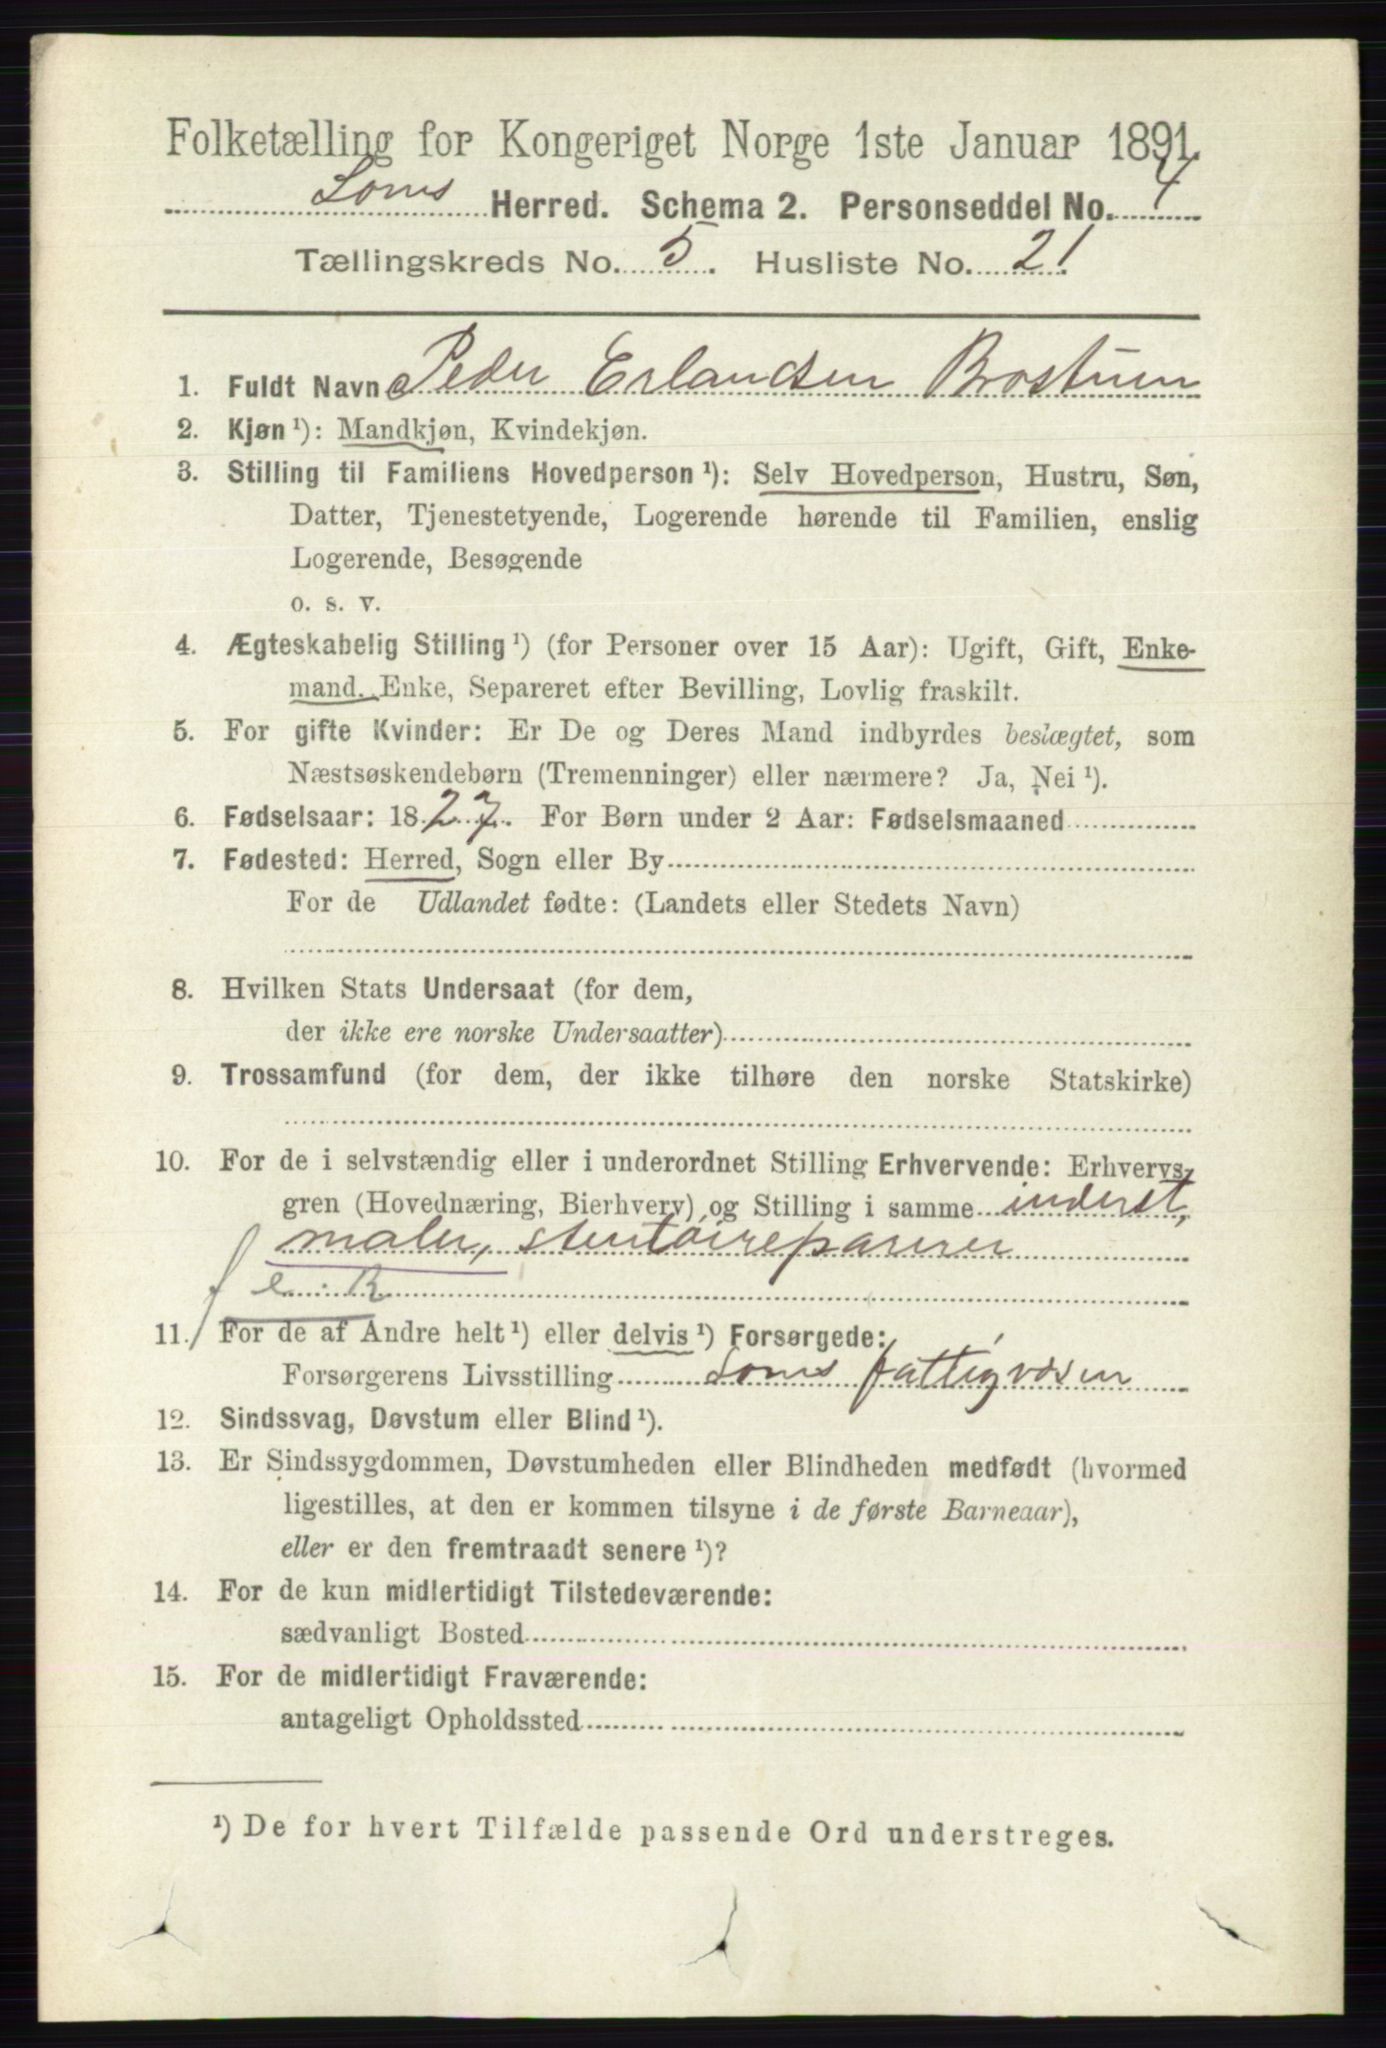 Folketælling for Kongeriget Norge 1ste Januar 1891.
Loms Herred. Schema 2. Personseddel No. 4
Tællingskreds No. 5. Husliste No. 21.
1. Fuldt Navn Peder Erlandsen Brostuen
2. Kjøn ¹): Mandkjøn, Kvindekjøn.
3. Stilling til Familiens Hovedperson ¹): Selv Hovedperson, Hustru, Søn,
Datter, Tjenestetyende, Logerende hørende til Familien, enslig
Logerende, Besøgende
o. s. v.
4. Ægteskabelig Stilling ¹) (for Personer over 15 Aar): Ugift, Gift, Enke-
mand, Enke, Separeret efter Bevilling, Lovlig fraskilt.
5. For gifte Kvinder: Er De og Deres Mand indbyrdes beslægtet, som
Næstsøskendebørn (Tremenninger) eller nærmere? Ja, Nei ¹).
6. Fødselsaar: 1827. For Børn under 2 Aar: Fødselsmaaned
7. Fødested: Herred, Sogn eller By
For de Udlandet fødte: (Landets eller Stedets Navn)
8. Hvilken Stats Undersaat (for dem,
der ikke ere norske Undersaatter)
9. Trossamfund (for dem, der ikke tilhøre den norske Statskirke)
10. For de i selvstændig eller i underordnet Stilling Erhvervende: Erhvervs-
gren (Hovednæring, Bierhverv) og Stilling i samme inderst,
maler, stentøireparerer
f e. R
11. For de af Andre helt ¹) eller delvis ¹) Forsørgede:
Forsørgerens Livsstilling Loms fattigvæsen
12. Sindssvag, Døvstum eller Blind ¹).
13. Er Sindssygdommen, Døvstumheden eller Blindheden medfødt (hvormed
ligestilles, at den er kommen tilsyne i de første Barneaar),
eller er den fremtraadt senere ¹)?
14. For de kun midlertidigt Tilstedeværende:
sædvanligt Bosted
15. For de midlertidigt Fraværende:
antageligt Opholdssted
¹) De for hvert Tilfælde passende Ord understreges.